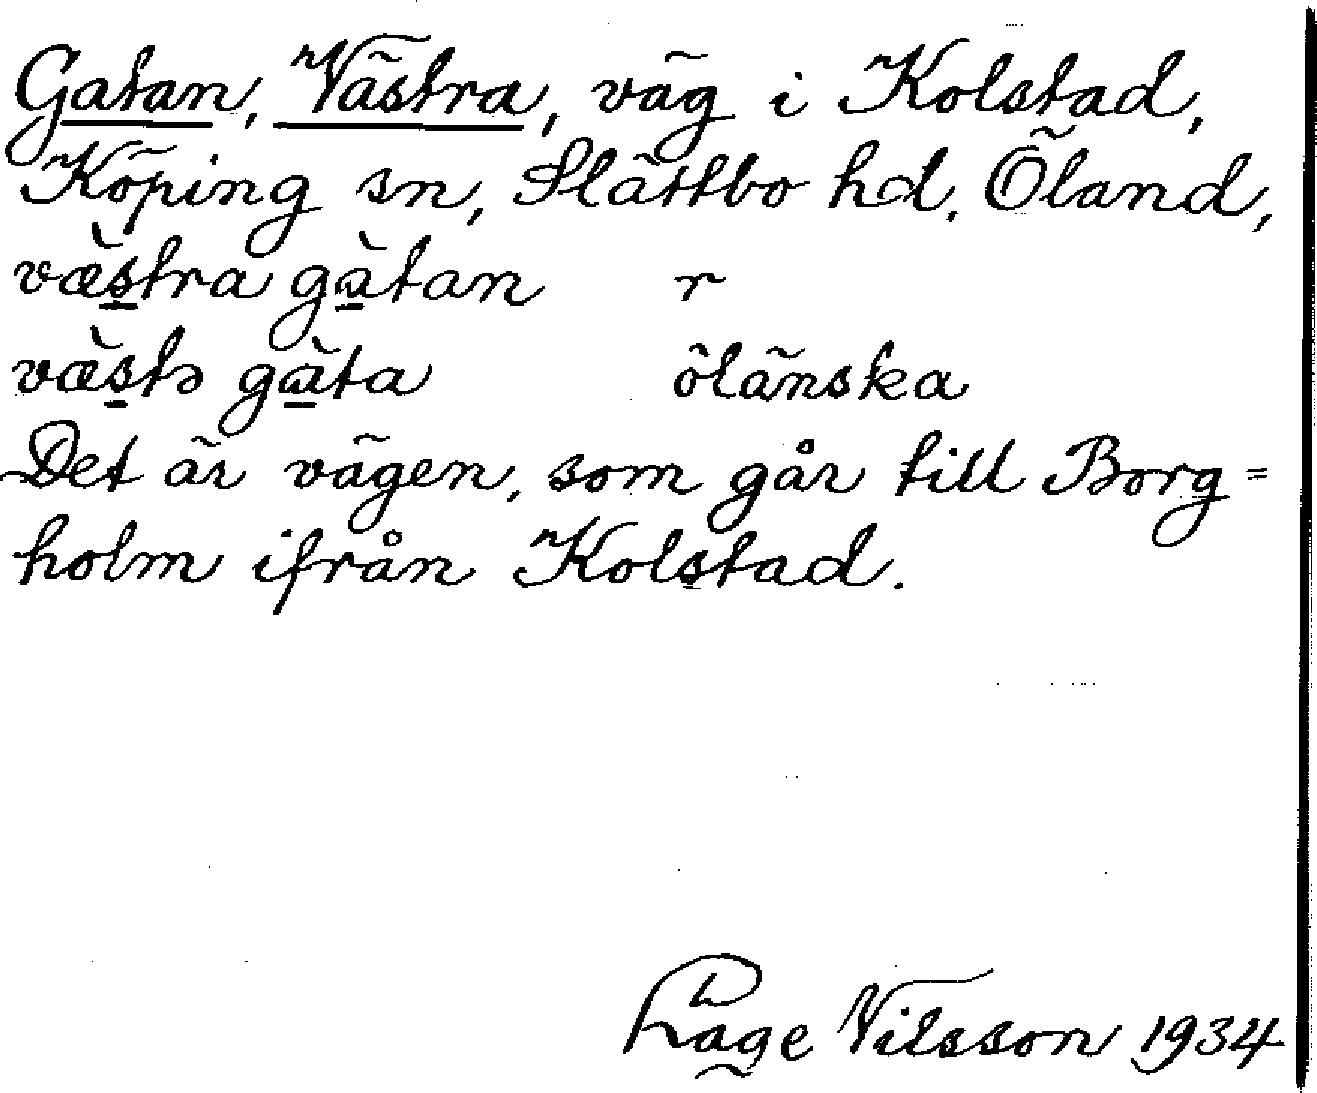 Gatan, Västra, väg i Kolstad,
Köping sn, Slättbo hd. Öland,
væ̀stra gàtan r
væ̀stə gàta öländska
Det är vägen, som går till Borg=
holm ifrån Kolstad.
Råge Nilsson 1934